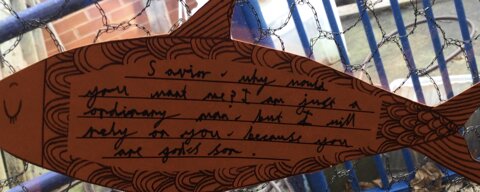 Savior - why would
you want me? I am just a
ordinary man - but I will
rely on you - because you
are gods son.